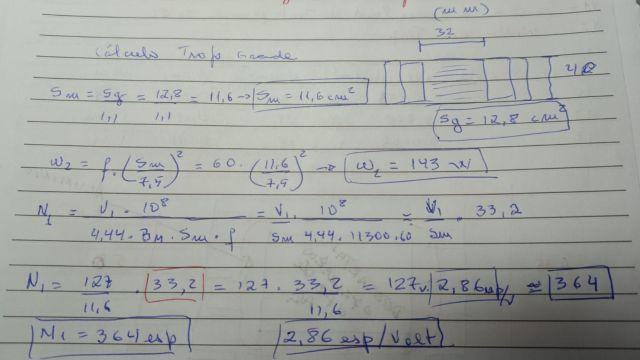 (mm)
32
Cálculo Trafo Grande
40
Sm = Sg/1,1 = 12,8/1,1 = 11,6 → Sm = 11,6 cm²
Sg = 12,8 cm²
W2 = f · (Sm/7,5)² = 60 · (11,6/7,5)² → W2 = 143 W
N1 = V1 · 10⁸ / 4,44 · Bm · Sm · f = V1/Sm · 10⁸ / 4,44 · 11300 · 60 ≅ V1/Sm · 33,2
N1 = 127/11,6 · 33,2 = 127 · 33,2/11,6 = 127v. 2,86esp/v ≅ 364
N1 = 364 esp
2,86 esp/Volt